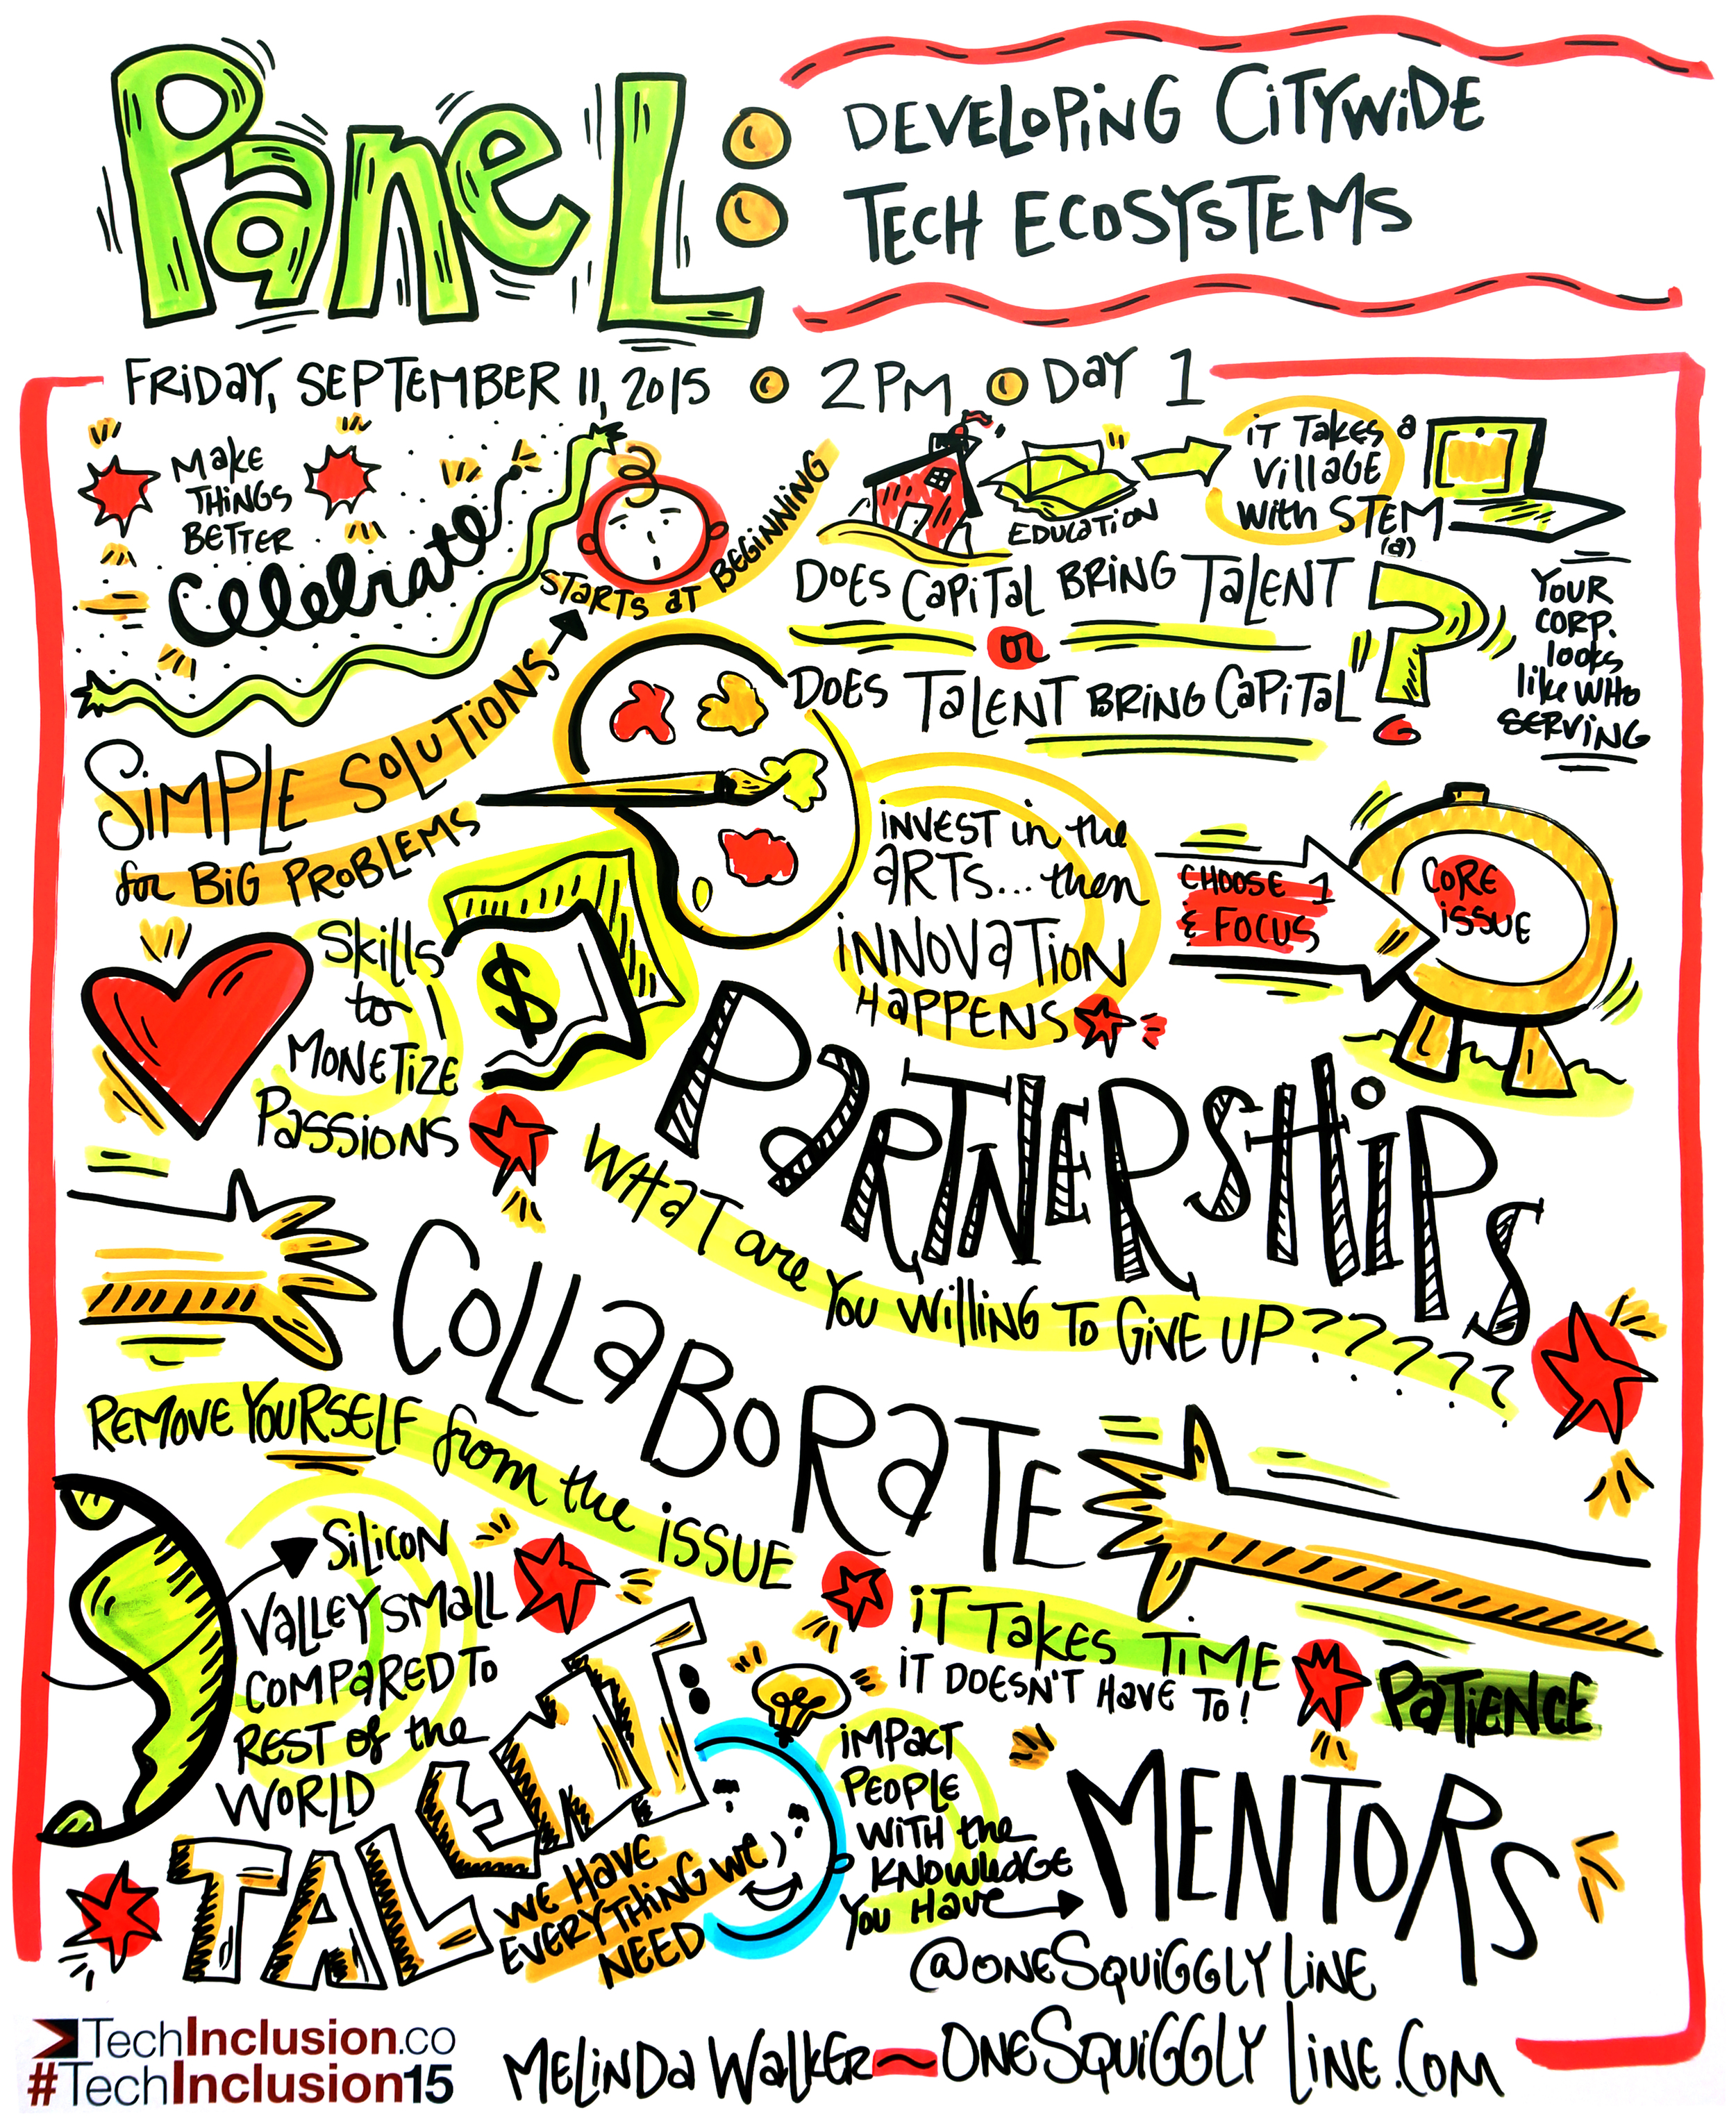 Panel:
DEVELOPING CITYWIDE
TECH ECOSYSTEMS
FRIDAY, SEPTEMBER 11, 2015 • 2PM • DAY 1
MAKE
THINGS
BETTER
Celebrate
STARTS AT BEGINNING
SIMPLE SOLUTIONS
for BIG PROBLEMS
EDUCATION
IT TAKES a
VILLAGE
with STEM
(a)
DOES CAPITAL BRING TALENT
or
DOES TALENT BRING CAPITAL
?
YOUR
CORP.
looks
like WHO
SERVING
INVEST in the
ARTS... then
INNOVATION
HAPPENS
CHOOSE 1
& FOCUS
CORE
ISSUE
Skills
to
MONETIZE
PASSIONS
$
PARTNERSHIPS
WHAT are YOU WILLING TO GIVE UP??????
COLLABORATE
REMOVE YOURSELF from the ISSUE
SILICON
VALLEY SMALL
COMPARED TO
REST of the
WORLD
IT TAKES TIME
IT DOESN'T HAVE TO!
PATIENCE
TALENT:
WE HAVE
EVERYTHING WE
NEED
IMPACT
PEOPLE
WITH the
KNOWLEDGE
YOU HAVE
MENTORS
@ONESQUIGGLY LINE
TechInclusion.co
#TechInclusion15
MELINDA WALKER~ONESQUIGGLY LINE.COM